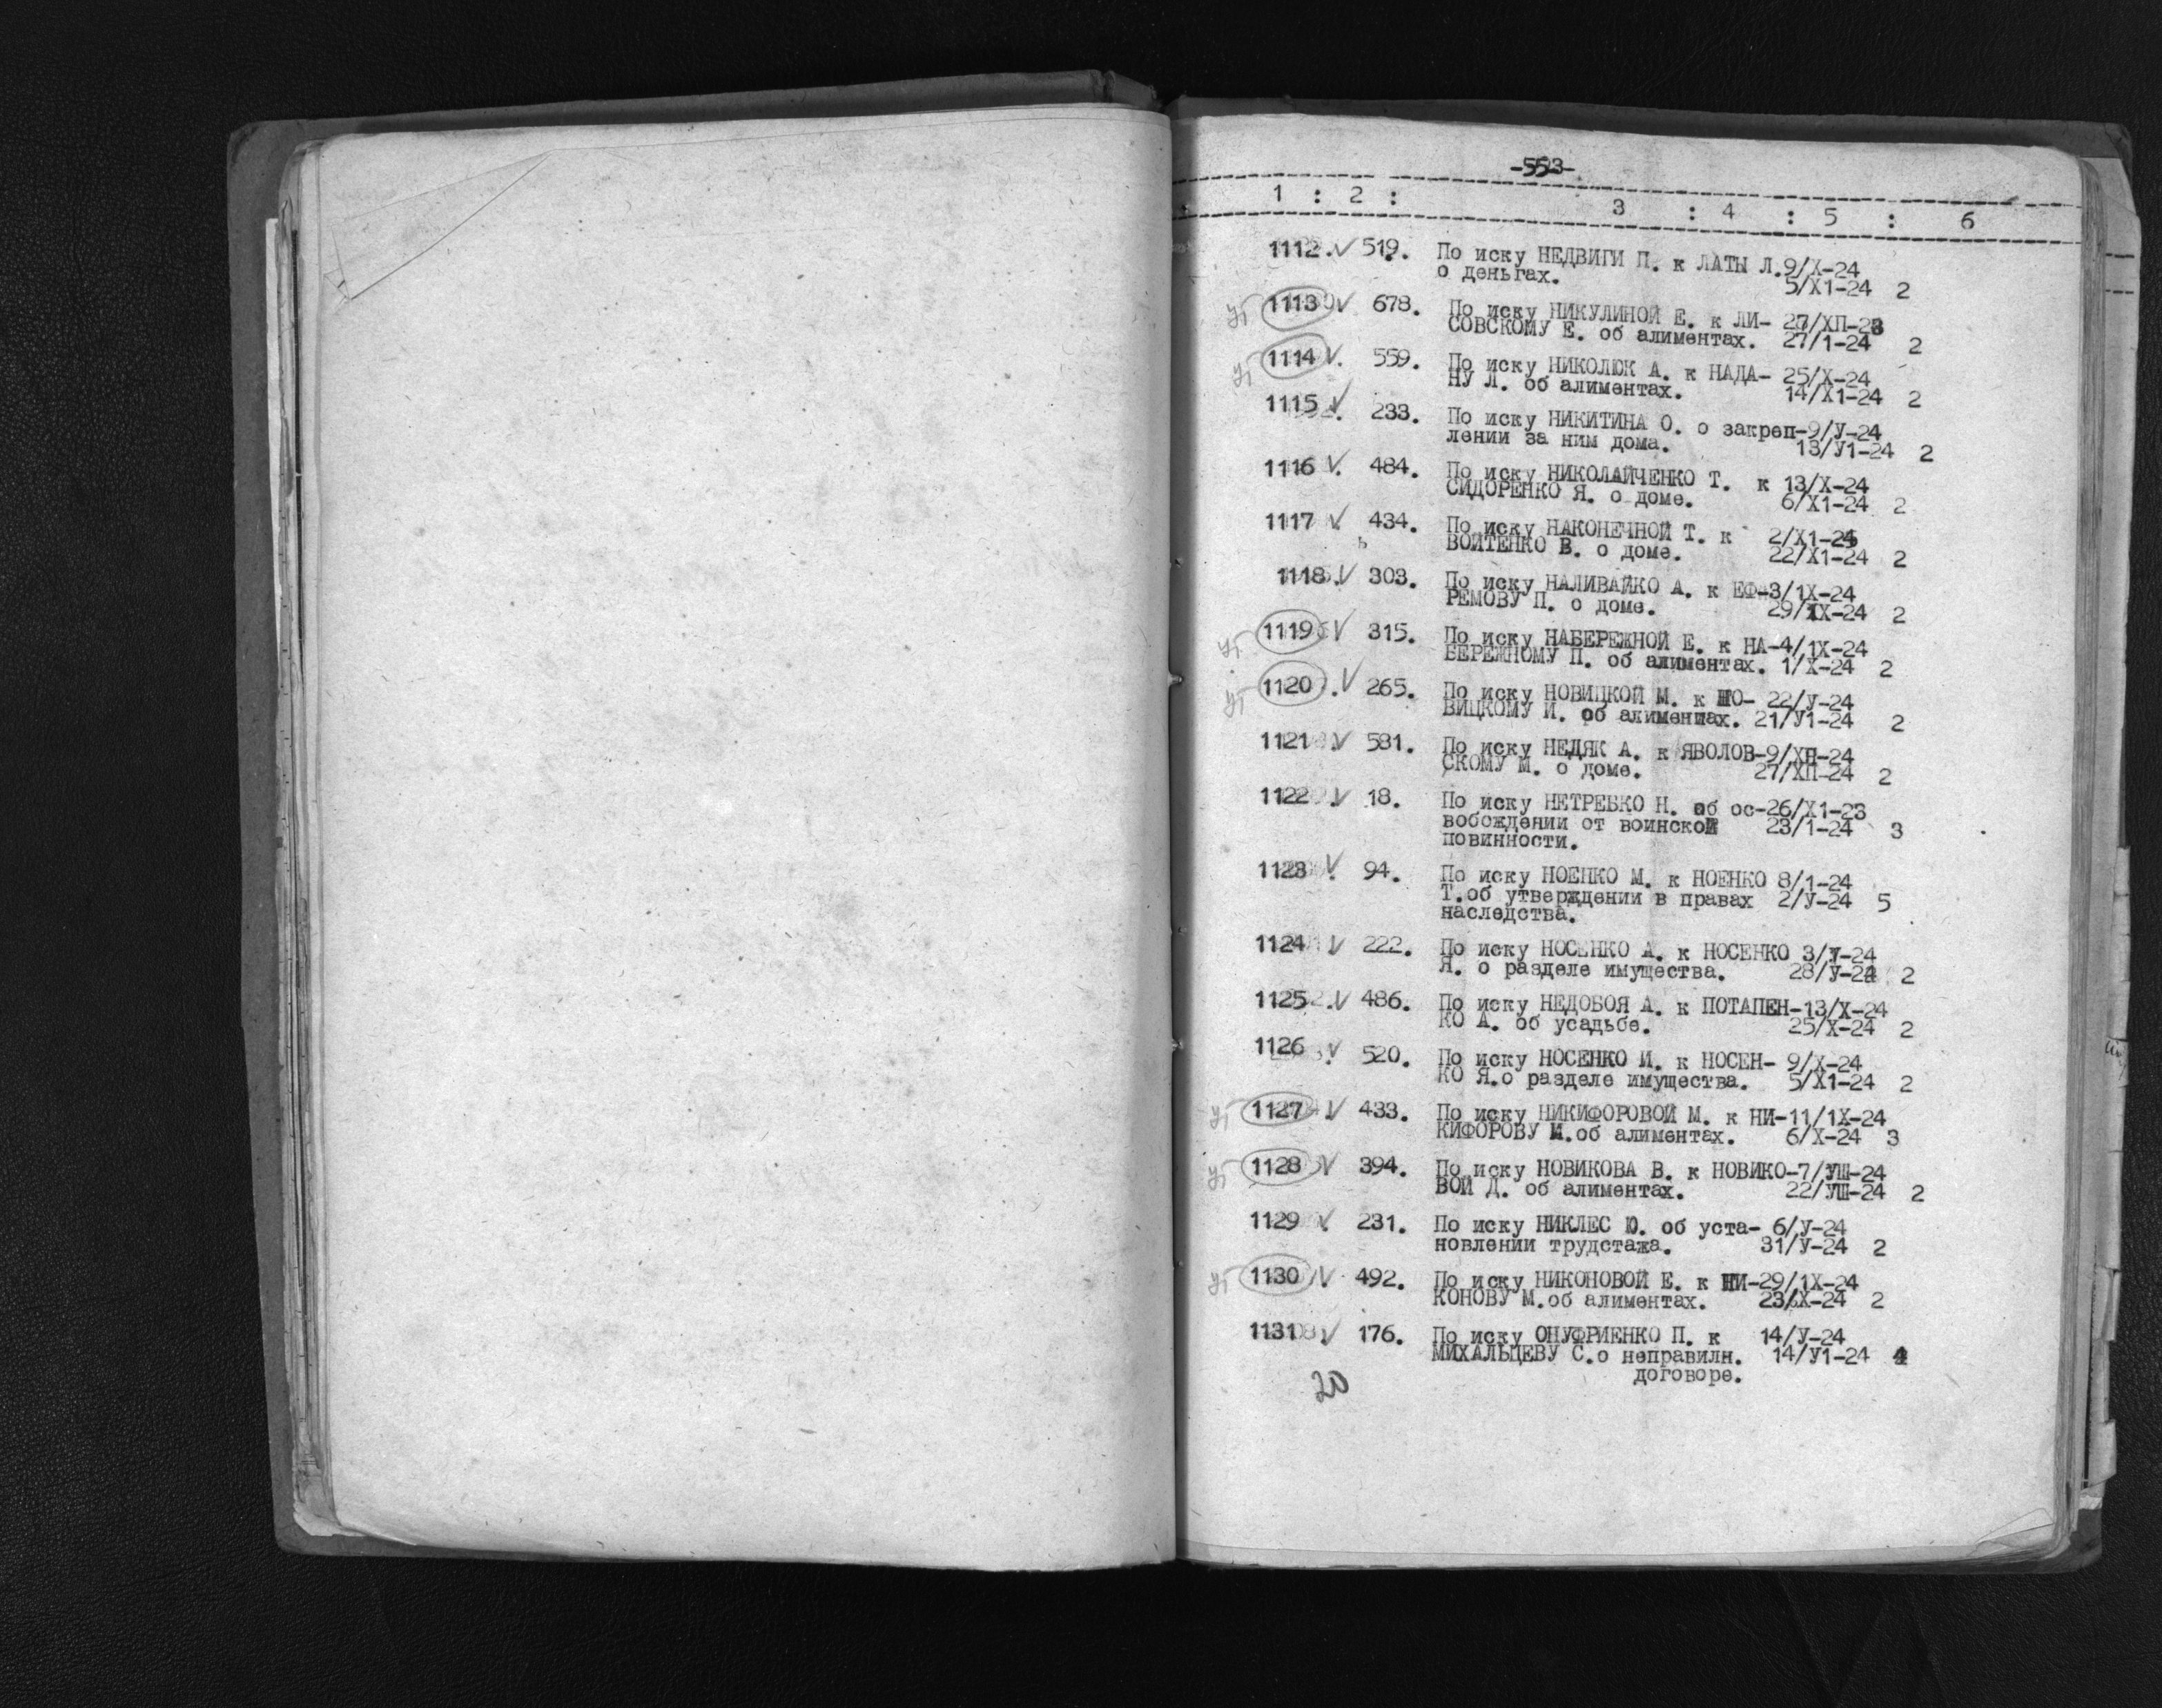 -553-
1 : 2 : 3 : 4 : 5 : 6
1112. V 519. По иску НЕДВИГИ П. к ЛАТЫ Л. 9/Х-24
о деньгах. 5/Х1-24 2
1113 V 678. По иску НИКУЛИНОЙ Е. к ЛИ- 27/ХП-23
СОВСКОМУ Е. об алиментах. 27/1-24 2
1114 V. 559. По иску НИКОЛЮК А. к НАДА- 25/Х-24
НУ Л. об алиментах. 14/Х1-24 2
1115 V. 233. По иску НИКИТИНА О. о закреп- 9/У-24
лении за ним дома. 13/У1-24 2
1116 V. 484. По иску НИКОЛАЙЧЕНКО Т. к 13/Х-24
СИДОРЕНКО Я. о доме. 6/Х1-24 2
1117 V 434. По иску НАКОНЕЧНОЙ Т. к 2/Х1-24
ВОЙТЕНКО В. о доме. 22/Х1-24 2
1118. V 303. По иску НАЛИВАЙКО А. к ЕФ- 3/1Х-24
РЕМОВУ П. о доме. 29/1Х-24 2
1119 V 315. По иску НАБЕРЕЖНОЙ Е. к НА- 4/1Х-24
БЕРЕЖНОМУ П. об алиментах. 1/Х-24 2
1120 . V 265. По иску НОВИЦКОЙ М. к НО- 22/У-24
ВИЦКОМУ И. об алиментах. 21/У1-24 2
1121 V 581. По иску НЕДЯК А. к ЯВОЛОВ- 9/ХП-24
СКОМУ М. о доме. 27/ХП-24 2
1122 V 18. По иску НЕТРЕБКО Н. об ос- 26/Х1-23
вобождении от воинской 23/1-24 3
повинности.
1123 V. 94. По иску НОЕНКО М. к НОЕНКО 8/1-24
Т.об утверждении в правах 2/У-24 5
наследства.
1124 V 222. По иску НОСЕНКО А. к НОСЕНКО 3/У-24
Я. о разделе имущества. 28/У-24 2
1125 .V 486. По иску НЕДОБОЯ А. к ПОТАПЕН- 13/Х-24
КО А. об усадьбе. 25/Х-24 2
1126 V. 520. По иску НОСЕНКО И. к НОСЕН- 9/Х-24
КО Я.о разделе имущества. 5/Х1-24 2
1127 V 433. По иску НИКИФОРОВОЙ М. к НИ- 11/1Х-24
КИФОРОВУ И.об алиментах. 6/Х-24 3
1128 V 394. По иску НОВИКОВА В. к НОВИКО- 7/УШ-24
ВОЙ Д. об алиментах. 22/УШ-24 2
1129 V. 231. По иску НИКЛЕС Ю. об уста- 6/У-24
новлении трудстажа. 31/У-24 2
1130 V 492. По иску НИКОНОВОЙ Е. к НИ- 29/1Х-24
КОНОВУ М.об алиментах. 23/Х-24 2
1131 V 176. По иску ОНУФРИЕНКО П. к 14/У-24
МИХАЛЬЦЕВУ С.о неправилн. 14/У1-24 4
договоре.
20